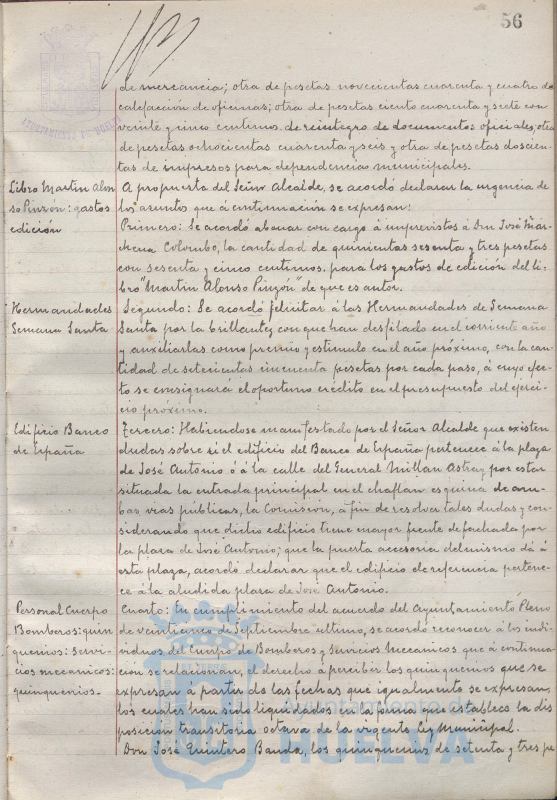 56
AYUNTAMIENTO DE HUELVA
de mercancia; otra de pesetas novecientas cuarenta y cuatro de
calefacción de oficinas; otra de pesetas ciento cuarenta y siete con
veinte y cinco centimos de reintegro de documentos oficiales, otra
de pesetas ochocientas cuarenta y seis y otra de pesetas doscien-
tas de impresos para dependencias municipales.
Libro Martin Alon
so Pinzón: gastos
edición
A propuesta del Señor Alcalde, se acordó declarar la urgencia de
los asuntos que á continuación se expresan:
Primero: Se acordó abonar con cargo á imprevistos á Don José Mar-
chena Colombo, la cantidad de quinientas sesenta y tres pesetas
con sesenta y cinco centimos, para los gastos de edición del li-
bro "Martin Alonso Pinzón" de que es autor.
Hermandades
Semana Santa
Segundo: Se acordó felicitar á las Hermandades de Semana
Santa por la brillantez con que han desfilado en el corriente año
y auxiliarlas como premio y estimulo en el año próximo, con la can-
tidad de setecientas cincuenta pesetas por cada paso, á cuyo efec-
to se consignará el oportuno crédito en el presupuesto del ejerci-
cio próximo.
Edificio Banco
de España
Tercero: Habiendose manifestado por el Señor Alcalde que existen
dudas sobre si el edificio del Banco de España pertenece á la plaza
de José Antonio ó á la calle del General Millan Astray por estar
situada la entrada principal en el chaflan esquina de am-
bas vias públicas, la Comisión, á fin de resolver tales dudas y con-
siderando que dicho edificio tiene mayor frente de fachada por
la plaza de José Antonio; que la puerta accesoria del mismo dá á
esta plaza, acordó declarar que el edificio de referencia pertene-
ce á la aludida plaza de José Antonio.
Personal Cuerpo
Bomberos: quin
quenios: Servi-
cios mecanicos:
quinquenios.
Cuarto: En cumplimiento del acuerdo del Ayuntamiento Pleno
de veinticinco de Septiembre ultimo, se acordó reconocer á los indi-
viduos del Cuerpo de Bomberos y Servicios Mecanicos que á continua-
ción se relacionan, el derecho á percibir los quinquenios que se
expresan á partir de las fechas que igualmente se expresan,
los cuales han sido liquidados en la forma que establece la dis
posición transitoria octava de la vigente Ley Municipal.
Don José Quintero Banda, los quinquenios de setenta y tres pe
Ayuntamiento de
HUELVA